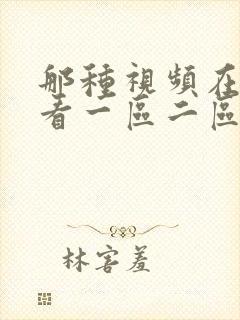 那種視頻在
看一區二區
林害羞